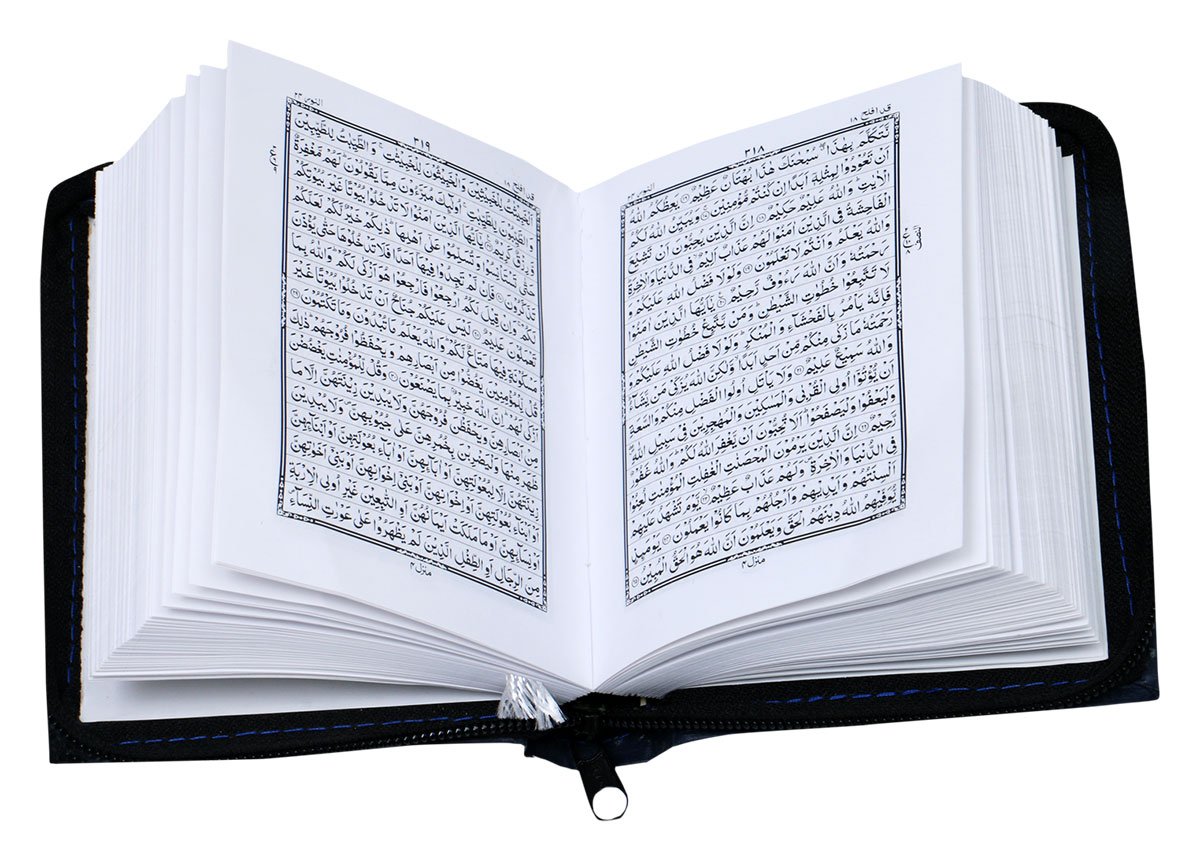 قد افلح ۱۸
٣١٨
النور ٢٤
نَّتَكَلَّمَ بِهٰذَا ۖ سُبْحٰنَكَ هٰذَا بُهْتَانٌ عَظِيْمٌ ۱۶ يَعِظُكُمُ اللّٰهُ
اَنْ تَعُوْدُوْا لِمِثْلِهٖٓ اَبَدًا اِنْ كُنْتُمْ مُّؤْمِنِيْنَ ۱۷ وَيُبَيِّنُ اللّٰهُ لَكُمُ
الْاٰيٰتِ ؕ وَاللّٰهُ عَلِيْمٌ حَكِيْمٌ ۱۸ اِنَّ الَّذِيْنَ يُحِبُّوْنَ اَنْ تَشِيْعَ
الْفَاحِشَةُ فِي الَّذِيْنَ اٰمَنُوْا لَهُمْ عَذَابٌ اَلِيْمٌ فِي الدُّنْيَا وَالْاٰخِرَةِ
وَاللّٰهُ يَعْلَمُ وَاَنْتُمْ لَا تَعْلَمُوْنَ ۱۹ وَلَوْلَا فَضْلُ اللّٰهِ عَلَيْكُمْ وَ
رَحْمَتُهٗ وَاَنَّ اللّٰهَ رَءُوْفٌ رَّحِيْمٌ ۲۰ يٰٓاَيُّهَا الَّذِيْنَ اٰمَنُوْا
لَا تَتَّبِعُوْا خُطُوٰتِ الشَّيْطٰنِ وَمَنْ يَّتَّبِعْ خُطُوٰتِ الشَّيْطٰنِ
فَاِنَّهٗ يَاْمُرُ بِالْفَحْشَآءِ وَالْمُنْكَرِ وَلَوْلَا فَضْلُ اللّٰهِ عَلَيْكُمْ وَ
رَحْمَتُهٗ مَا زَكٰى مِنْكُمْ مِّنْ اَحَدٍ اَبَدًا وَّلٰكِنَّ اللّٰهَ يُزَكِّيْ مَنْ يَّشَآءُ
وَاللّٰهُ سَمِيْعٌ عَلِيْمٌ ۲۱ وَلَا يَاْتَلِ اُولُوا الْفَضْلِ مِنْكُمْ وَالسَّعَةِ
اَنْ يُّؤْتُوْٓا اُولِي الْقُرْبٰى وَالْمَسٰكِيْنَ وَالْمُهٰجِرِيْنَ فِيْ سَبِيْلِ اللّٰهِ
وَلْيَعْفُوْا وَلْيَصْفَحُوْا اَلَا تُحِبُّوْنَ اَنْ يَّغْفِرَ اللّٰهُ لَكُمْ وَاللّٰهُ غَفُوْرٌ
رَّحِيْمٌ ۲۲ اِنَّ الَّذِيْنَ يَرْمُوْنَ الْمُحْصَنٰتِ الْغٰفِلٰتِ الْمُؤْمِنٰتِ لُعِنُوْا
فِي الدُّنْيَا وَالْاٰخِرَةِ وَلَهُمْ عَذَابٌ عَظِيْمٌ ۲۳ يَّوْمَ تَشْهَدُ عَلَيْهِمْ
اَلْسِنَتُهُمْ وَاَيْدِيْهِمْ وَاَرْجُلُهُمْ بِمَا كَانُوْا يَعْمَلُوْنَ ۲۴ يَوْمَئِذٍ
يُّوَفِّيْهِمُ اللّٰهُ دِيْنَهُمُ الْحَقَّ وَيَعْلَمُوْنَ اَنَّ اللّٰهَ هُوَ الْحَقُّ الْمُبِيْنُ ۲۵
منزل ۴
النور ٢٤
٣١٩
قد افلح ۱۸
اَلْخَبِيْثٰتُ لِلْخَبِيْثِيْنَ وَالْخَبِيْثُوْنَ لِلْخَبِيْثٰتِ وَالطَّيِّبٰتُ لِلطَّيِّبِيْنَ
وَالطَّيِّبُوْنَ لِلطَّيِّبٰتِ اُولٰٓئِكَ مُبَرَّءُوْنَ مِمَّا يَقُوْلُوْنَ لَهُمْ مَّغْفِرَةٌ
وَّرِزْقٌ كَرِيْمٌ ۲۶ يٰٓاَيُّهَا الَّذِيْنَ اٰمَنُوْا لَا تَدْخُلُوْا بُيُوْتًا غَيْرَ بُيُوْتِكُمْ
حَتّٰى تَسْتَاْنِسُوْا وَتُسَلِّمُوْا عَلٰٓى اَهْلِهَا ذٰلِكُمْ خَيْرٌ لَّكُمْ لَعَلَّكُمْ
تَذَكَّرُوْنَ ۲۷ فَاِنْ لَّمْ تَجِدُوْا فِيْهَآ اَحَدًا فَلَا تَدْخُلُوْهَا حَتّٰى يُؤْذَنَ
لَكُمْ وَاِنْ قِيْلَ لَكُمُ ارْجِعُوْا فَارْجِعُوْا هُوَ اَزْكٰى لَكُمْ وَاللّٰهُ بِمَا
تَعْمَلُوْنَ عَلِيْمٌ ۲۸ لَيْسَ عَلَيْكُمْ جُنَاحٌ اَنْ تَدْخُلُوْا بُيُوْتًا غَيْرَ
مَسْكُوْنَةٍ فِيْهَا مَتَاعٌ لَّكُمْ وَاللّٰهُ يَعْلَمُ مَا تُبْدُوْنَ وَمَا تَكْتُمُوْنَ ۲۹
قُلْ لِّلْمُؤْمِنِيْنَ يَغُضُّوْا مِنْ اَبْصَارِهِمْ وَيَحْفَظُوْا فُرُوْجَهُمْ ذٰلِكَ
اَزْكٰى لَهُمْ اِنَّ اللّٰهَ خَبِيْرٌۢ بِمَا يَصْنَعُوْنَ ۳۰ وَقُلْ لِّلْمُؤْمِنٰتِ يَغْضُضْنَ
مِنْ اَبْصَارِهِنَّ وَيَحْفَظْنَ فُرُوْجَهُنَّ وَلَا يُبْدِيْنَ زِيْنَتَهُنَّ اِلَّا مَا
ظَهَرَ مِنْهَا وَلْيَضْرِبْنَ بِخُمُرِهِنَّ عَلٰى جُيُوْبِهِنَّ وَلَا يُبْدِيْنَ
زِيْنَتَهُنَّ اِلَّا لِبُعُوْلَتِهِنَّ اَوْ اٰبَآئِهِنَّ اَوْ اٰبَآءِ بُعُوْلَتِهِنَّ اَوْ اَبْنَآئِهِنَّ
اَوْ اَبْنَآءِ بُعُوْلَتِهِنَّ اَوْ اِخْوَانِهِنَّ اَوْ بَنِيْٓ اِخْوَانِهِنَّ اَوْ بَنِيْٓ اَخَوٰتِهِنَّ
اَوْ نِسَآئِهِنَّ اَوْ مَا مَلَكَتْ اَيْمَانُهُنَّ اَوِ التّٰبِعِيْنَ غَيْرِ اُولِي الْاِرْبَةِ
مِنَ الرِّجَالِ اَوِ الطِّفْلِ الَّذِيْنَ لَمْ يَظْهَرُوْا عَلٰى عَوْرٰتِ النِّسَآءِ
منزل ۴